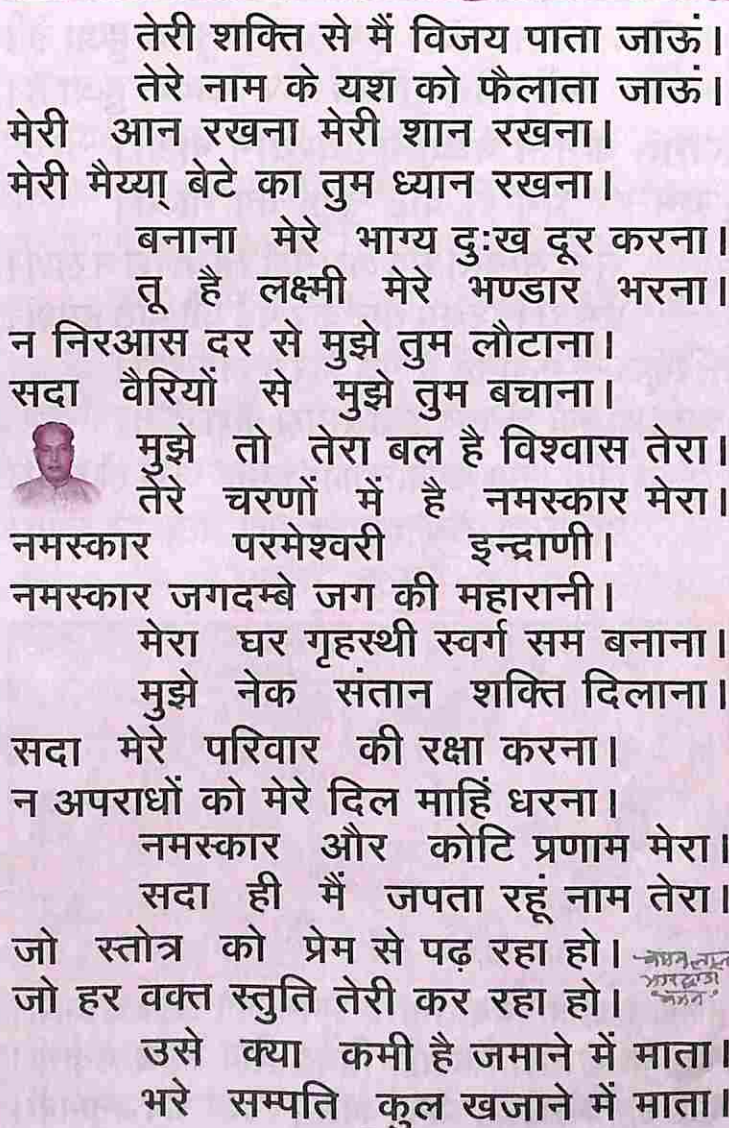 तेरी शक्ति से मैं विजय पाता जाऊं।
तेरे नाम के यश को फैलाता जाऊं।
मेरी आन रखना मेरी शान रखना।
मेरी मैय्या् बेटे का तुम ध्यान रखना।
बनाना मेरे भाग्य दुःख दूर करना।
तू है लक्ष्मी मेरे भण्डार भरना।
न निरआस दर से मुझे तुम लौटाना।
सदा वैरियों से मुझे तुम बचाना।
मुझे तो तेरा बल है विश्वास तेरा।
तेरे चरणों में है नमस्कार मेरा।
नमस्कार परमेश्वरी इन्द्राणी।
नमस्कार जगदम्बे जग की महारानी।
मेरा घर गृहस्थी स्वर्ग सम बनाना।
मुझे नेक संतान शक्ति दिलाना।
सदा मेरे परिवार की रक्षा करना।
न अपराधों को मेरे दिल माहिं धरना।
नमस्कार और कोटि प्रणाम मेरा।
सदा ही मैं जपता रहूं नाम तेरा।
जो स्तोत्र को प्रेम से पढ़ रहा हो।
जो हर वक्त स्तुति तेरी कर रहा हो।
उसे क्या कमी है जमाने में माता।
भरे सम्पति कुल खजाने में माता।